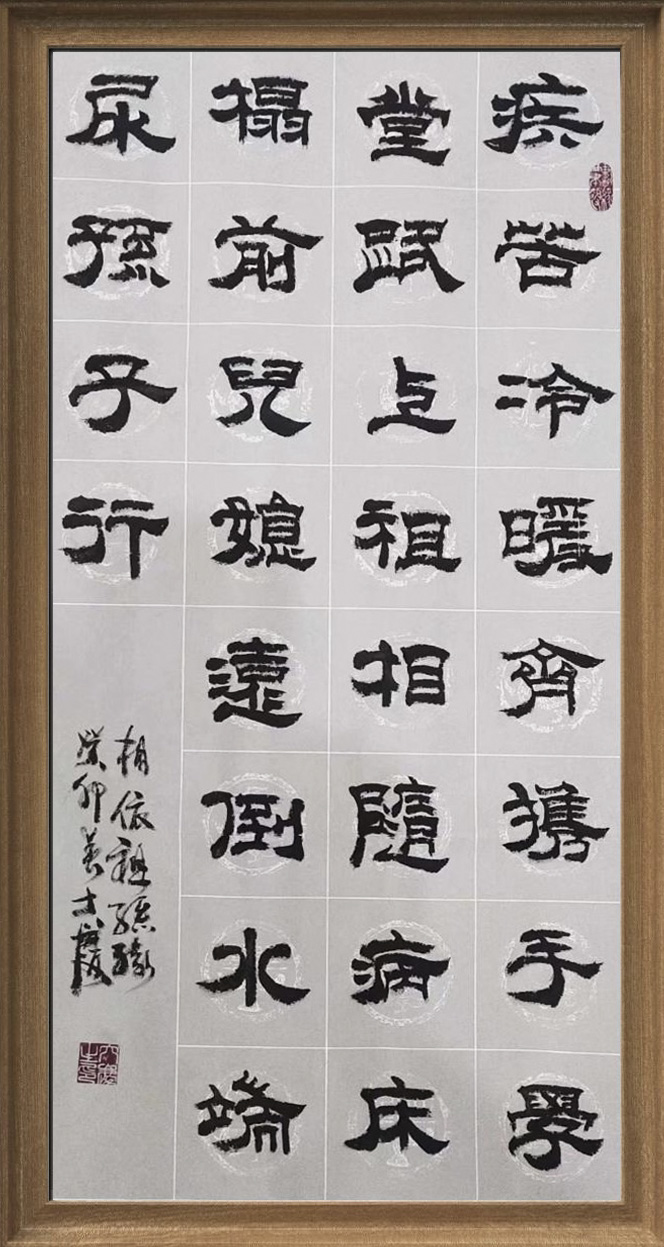 疾苦冷暖齊携手學
堂路上祖相隨病床
榻前兒媳遠倒水端
尿孫子行
相依祖孫緣
癸卯春